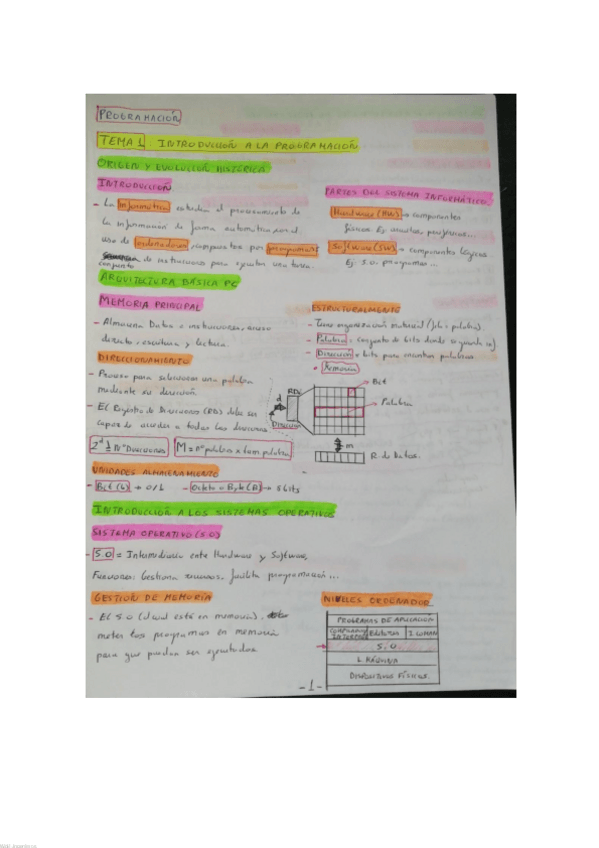 PROGRAMACIÓN
TEMA 1: INTRODUCCIÓN A LA PROGRAMACIÓN
ORIGEN Y EVOLUCIÓN HISTÓRICA
INTRODUCCIÓN
- La informática estudia el procesamiento de
la información de forma automática con el
uso de ordenadores compuestos por programas
conjunto de instrucciones para ejecutar una tarea.
PARTES DEL SISTEMA INFORMÁTICO
Hardware (HW) → componentes
físicos. Ej: ratón, periféricos...
Software (SW) → componentes lógicos
Ej: S.O. programas...
ARQUITECTURA BÁSICA PC
MEMORIA PRINCIPAL
- Almacena Datos e instrucciones, acceso
directo, escritura y lectura.
DIRECCIONAMIENTO
- Proceso para seleccionar una palabra
mediante su dirección.
- El Registro de Direcciones (RD) debe ser
capaz de acceder a todas las direcciones
2^d ≥ Nº Direcciones
M = nº palabras x tam palabra
ESTRUCTURALMENTE
- Tiene organización matricial (bits = palabra).
- Palabra = conjunto de bits donde se guarda
- Dirección = bits para encontrar palabras
• Memoria
RD
d
Dirección
Bit
Palabra
m
R. de Datos.
UNIDADES ALMACENAMIENTO
- Bit (b) → 0/1 - Octeto = Byte (B) → 8 bits
INTRODUCCIÓN A LOS SISTEMAS OPERATIVOS
SISTEMA OPERATIVO (S.O)
- S.O = Intermediario entre Hardware y Software,
Funciones: Gestiona recursos, facilita programación...
GESTIÓN DE MEMORIA
- El S.O (el cual está en memoria),
meter los programas en memoria
para que puedan ser ejecutados
NIVELES ORDENADOR
PROGRAMAS DE APLICACIÓN
COMPILADOR INTERPRETE EDITORES I. COMAN
S.O
L. MÁQUINA
DISPOSITIVOS FÍSICOS.
- 1 -